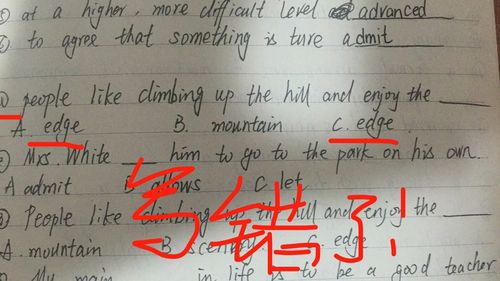 ⑤ at a higher, more difficult level advanced
⑥ to agree that something is ture admit
① people like climbing up the hill and enjoy the
A. edge B. mountain C. edge
② Mrs. White him to go to the park on his own.
A admit B allows C let
写错了!
③ People like climbing up the hill and enjoy the
A. mountain B scenery C. edge
My main in life is to be a good teacher